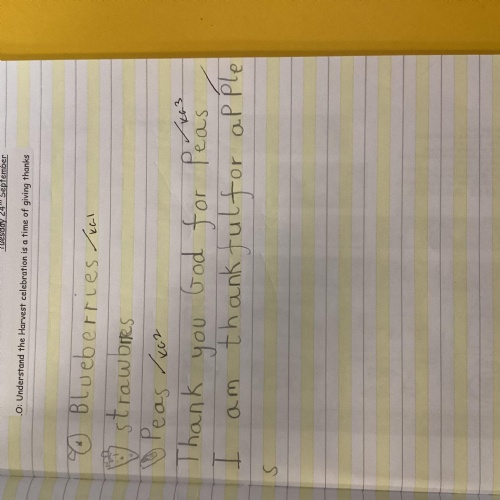 Tuesday 24th September
.O: Understand the Harvest celebration is a time of giving thanks
Blueberries ✓KG1
strawbries
Peas ✓KG2
Thank you God for Peas ✓KG3
I am thankful for aPPle
s